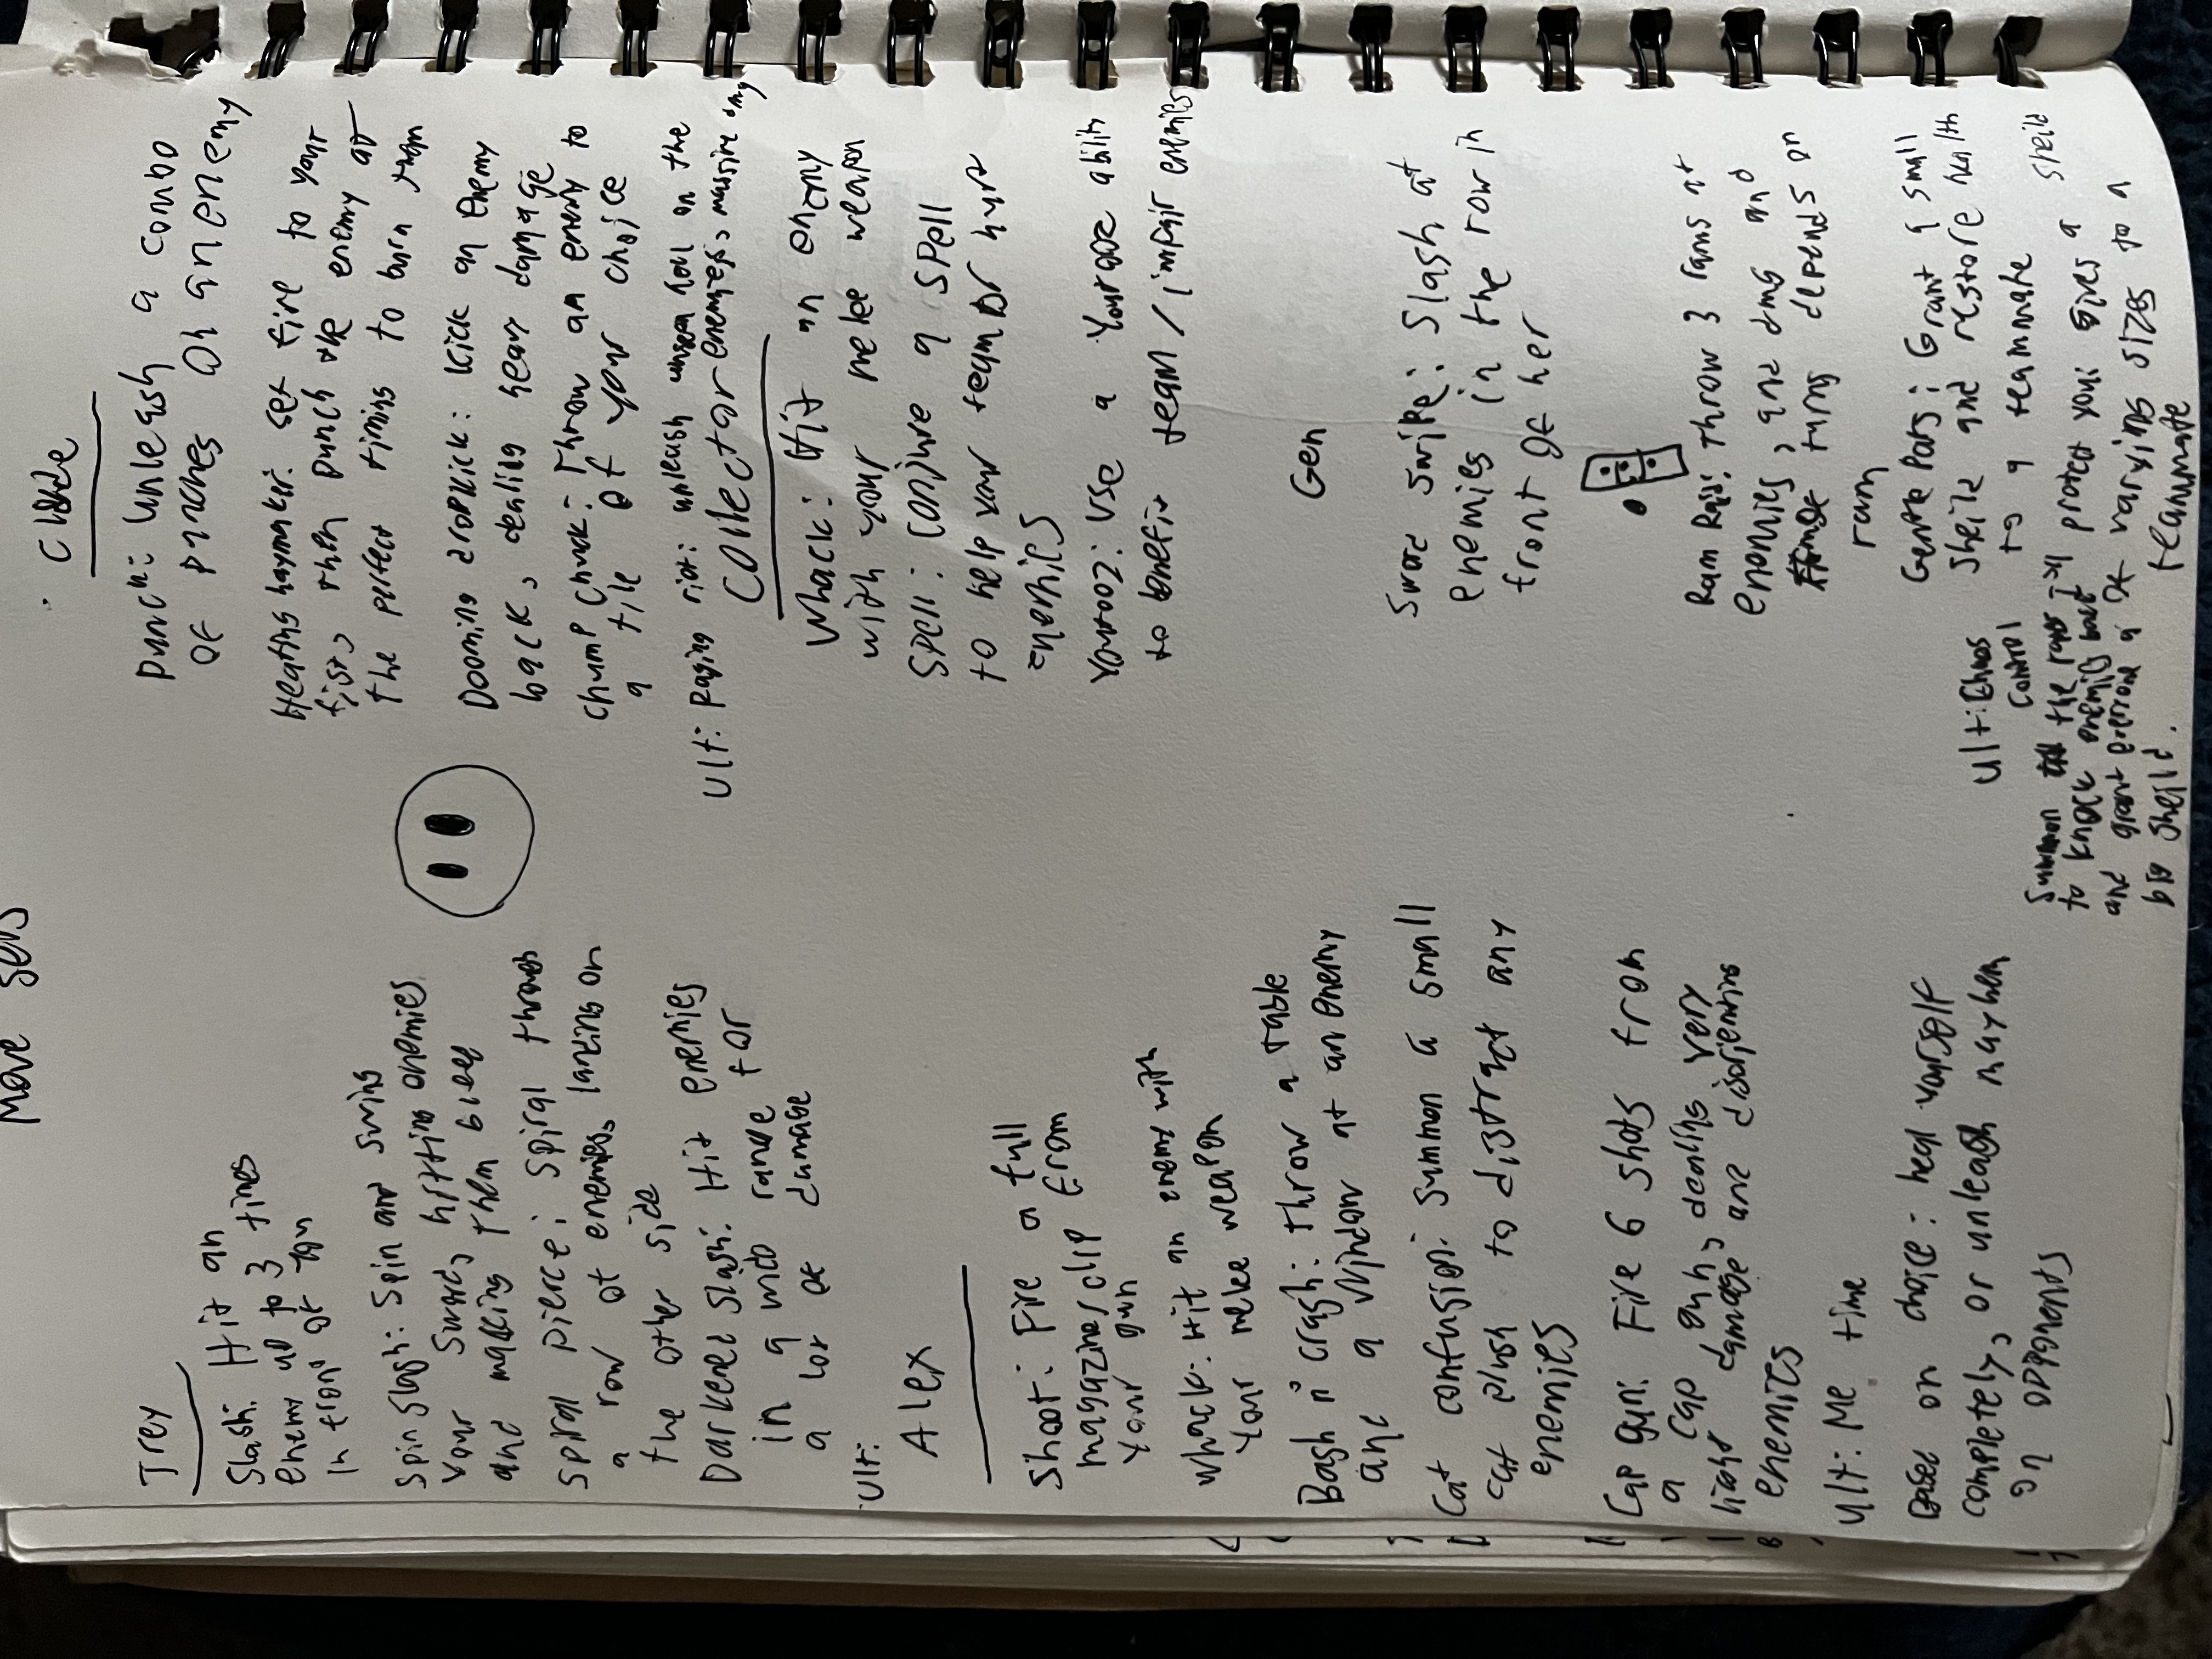 Move Sets
Trey
Slash: Hit an
enemy up to 3 times
in front of you
Spin Slash: Spin and swing
your sword, hitting enemies
and making them bleed
Spiral pierce: Spiral through
a row of enemies, landing on
the other side
Darkened Slash: Hit enemies
in a wide range for
a lot of damage
Ult:
Alex
Shoot: Fire a full
magazine/clip from
your gun
Whack: Hit an enemy with
your melee weapon
Bash n' crash: throw a table
and a window at an enemy
Cat confusion: summon a small
cat plush to distract any
enemies
Cap gun: Fire 6 shots from
a cap gun, dealing very
light damage and disorienting
enemies
Ult: Me time
Based on choice: heal yourself
completely, or unleash mayhem
on opponents
Punch: Unleash a combo
of punches on an enemy
Heating haymaker: set fire to your
fist, then punch the enemy at
the perfect timing to burn them
Dooming dropkick: kick an enemy
back, dealing heavy damage
Chump chuck: Throw an enemy to
a tile of your choice
Ult: Raging riot: unleash unseen hell on the
enemies, massive dmg
Collector
Whack: Hit an enemy
with your melee weapon
Spell: Conjure a spell
to help your team or hurt
enemies
Youtooz: Use a Youtooz ability
to benefit team / impair enemies
Gen
Sword Swipe: Slash at
enemies in the row in
front of her
Ram Raid: Throw 3 rams at
enemies, and dmg and
turns depends on
ram
Gentle Pats: Grant a small
sheild and restore health
to a teammate
I'll protect you: gives a sheild
of varying sizes to a
teammate
Ult: Chaos
Control
Summon the
to knock enemies back
and grant everyone a
big sheild.